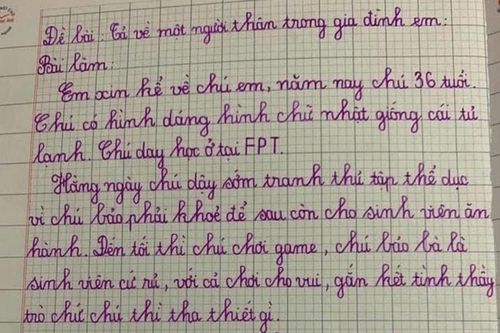 Đề bài: Tả về một người thân trong gia đình em:
Bài làm:
Em xin kể về chú em, năm nay chú 36 tuổi.
Chú có hình dáng hình chữ nhật giống cái tủ
lạnh. Chú dạy học ở tại FPT.
Hàng ngày chú dậy sớm tranh thủ tập thể dục
vì chú bảo phải khoẻ để sau còn cho sinh viên ăn
hành. Đến tối thì chú chơi game, chú bảo là là
sinh viên cứ rủ, với cả chơi cho vui, gắn kết tình thầy
trò chứ chú thì tha thiết gì.